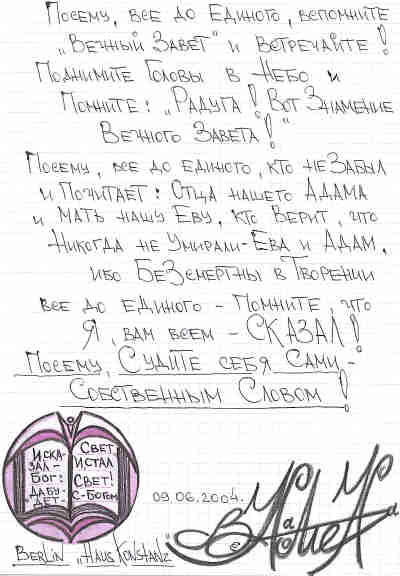 Посему, все до Единого, вспомните
„Вечный Завет" и встречайте!
Поднимите Головы в Небо и
Помните: „Радуга! Вот Знамение
Вечного Завета!"
Посему, все до единого, кто не Забыл
и Почитает: Отца нашего Адама
и Мать нашу Еву, кто Верит, что
Никогда не Умирали - Ева и Адам,
ибо Безсмертны в Творении
все до единого - Помните, что
Я, вам всем - СКАЗАЛ!
Посему, Судите себя Сами -
Собственным Словом!
И СКА-
ЗАЛ -
Бог:
ДА БУ-
"ДЕТ-
СВЕТ
И, СТАЛ
СВЕТ!
С-БОГОМ
09.06.2004.
Berlin „Haus Konstanz"